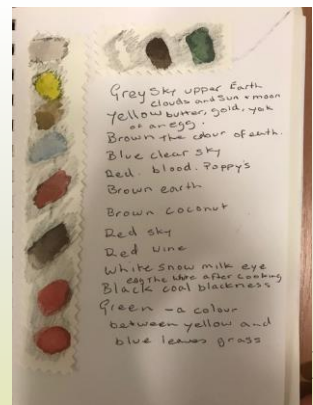 Grey sky upper Earth
clouds and Sun + moon
Yellow butter, gold, yok
of an egg.
Brown the colour of eath.
Blue clear sky
Red. blood. Poppys
Brown earth
Brown coconut
Red sky
Red wine
White snow milk eye
egg the white after cooking
Black coal blackness
Green - a colour
between yellow and
blue leaves grass